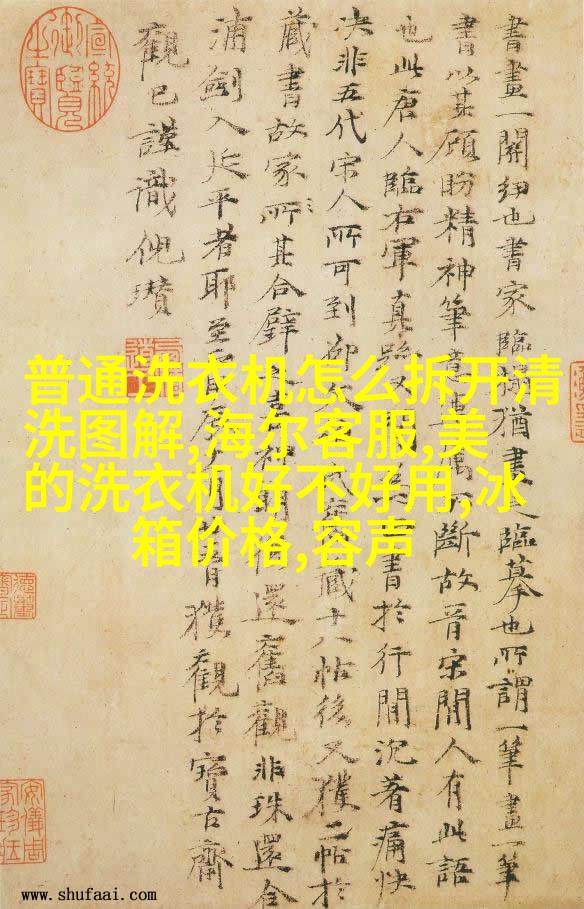 書畫一關紐也書家臨搨猶畫之臨摹也所謂一筆畫一筆
書以其顧盼精神筆意不斷故晉宋間人有此語
也此唐人臨右軍真跡又書於行間沉著痛快
決非五代宋人所可到藏十八帖後又獲二帖於
藏書故家所其合璧神明還舊觀非珠還合
浦劍入延平者耶至獲觀於寶古齋
觀已謹識倪瓚
宣統御覽之寶
普通洗衣机怎么拆开清
洗图解,海尔客服,美
的洗衣机好不好用,冰
箱价格,容声
www.shufaai.com